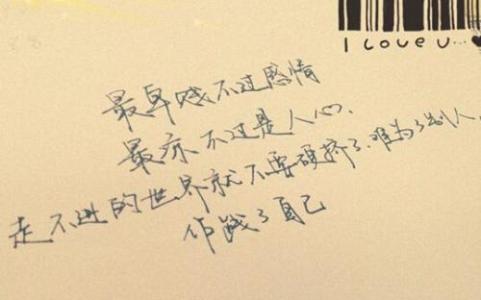 I Love U...
最卑贱不过感情
最凉不过是人心.
走不进的世界就不要硬挤了.难为了别人,
作践了自己